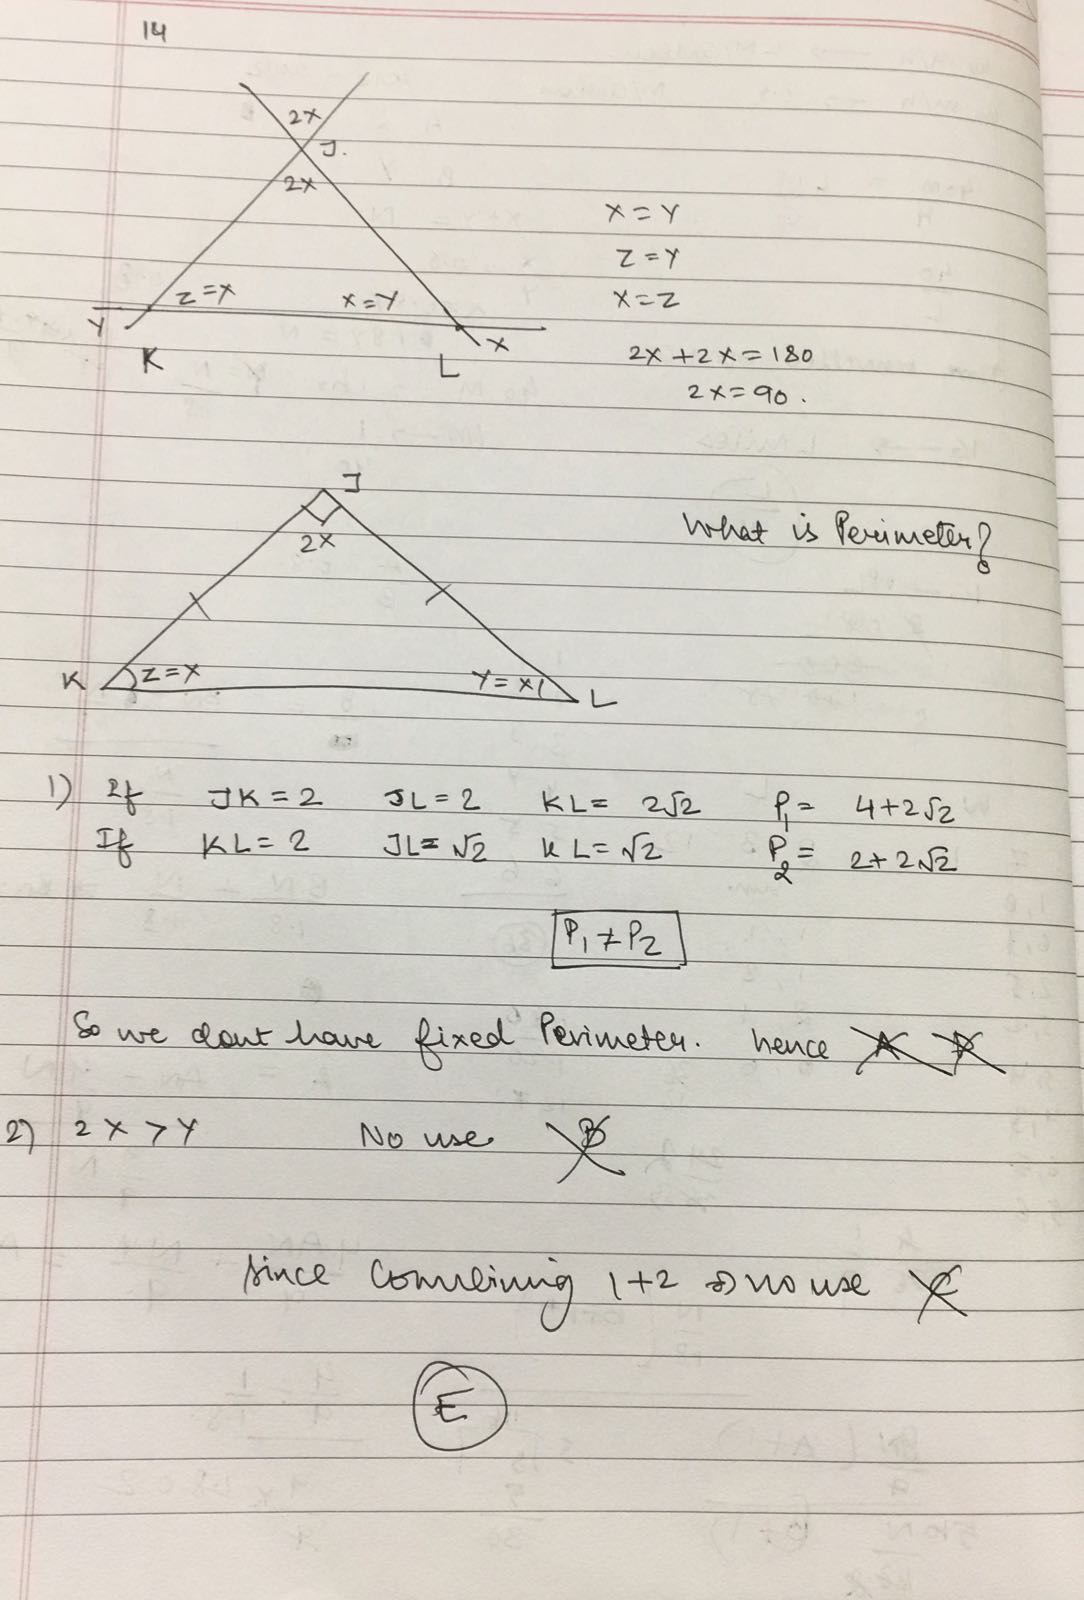 14
2x
J.
2x
x=y
z=y
z=x
x=y
x=z
y
x
K
L
2x+2x=180
2x=90.
J
What is Perimeter?
2x
K
z=x
y=x
L
1) If JK=2 JL=2 KL= 2√2 P1= 4+2√2
If KL=2 JL=√2 KL=√2 P2= 2+2√2
P1≠P2
So we dont have fixed Perimeter. hence A D
2) 2x>y No use B
since Combining 1+2 no use C
E